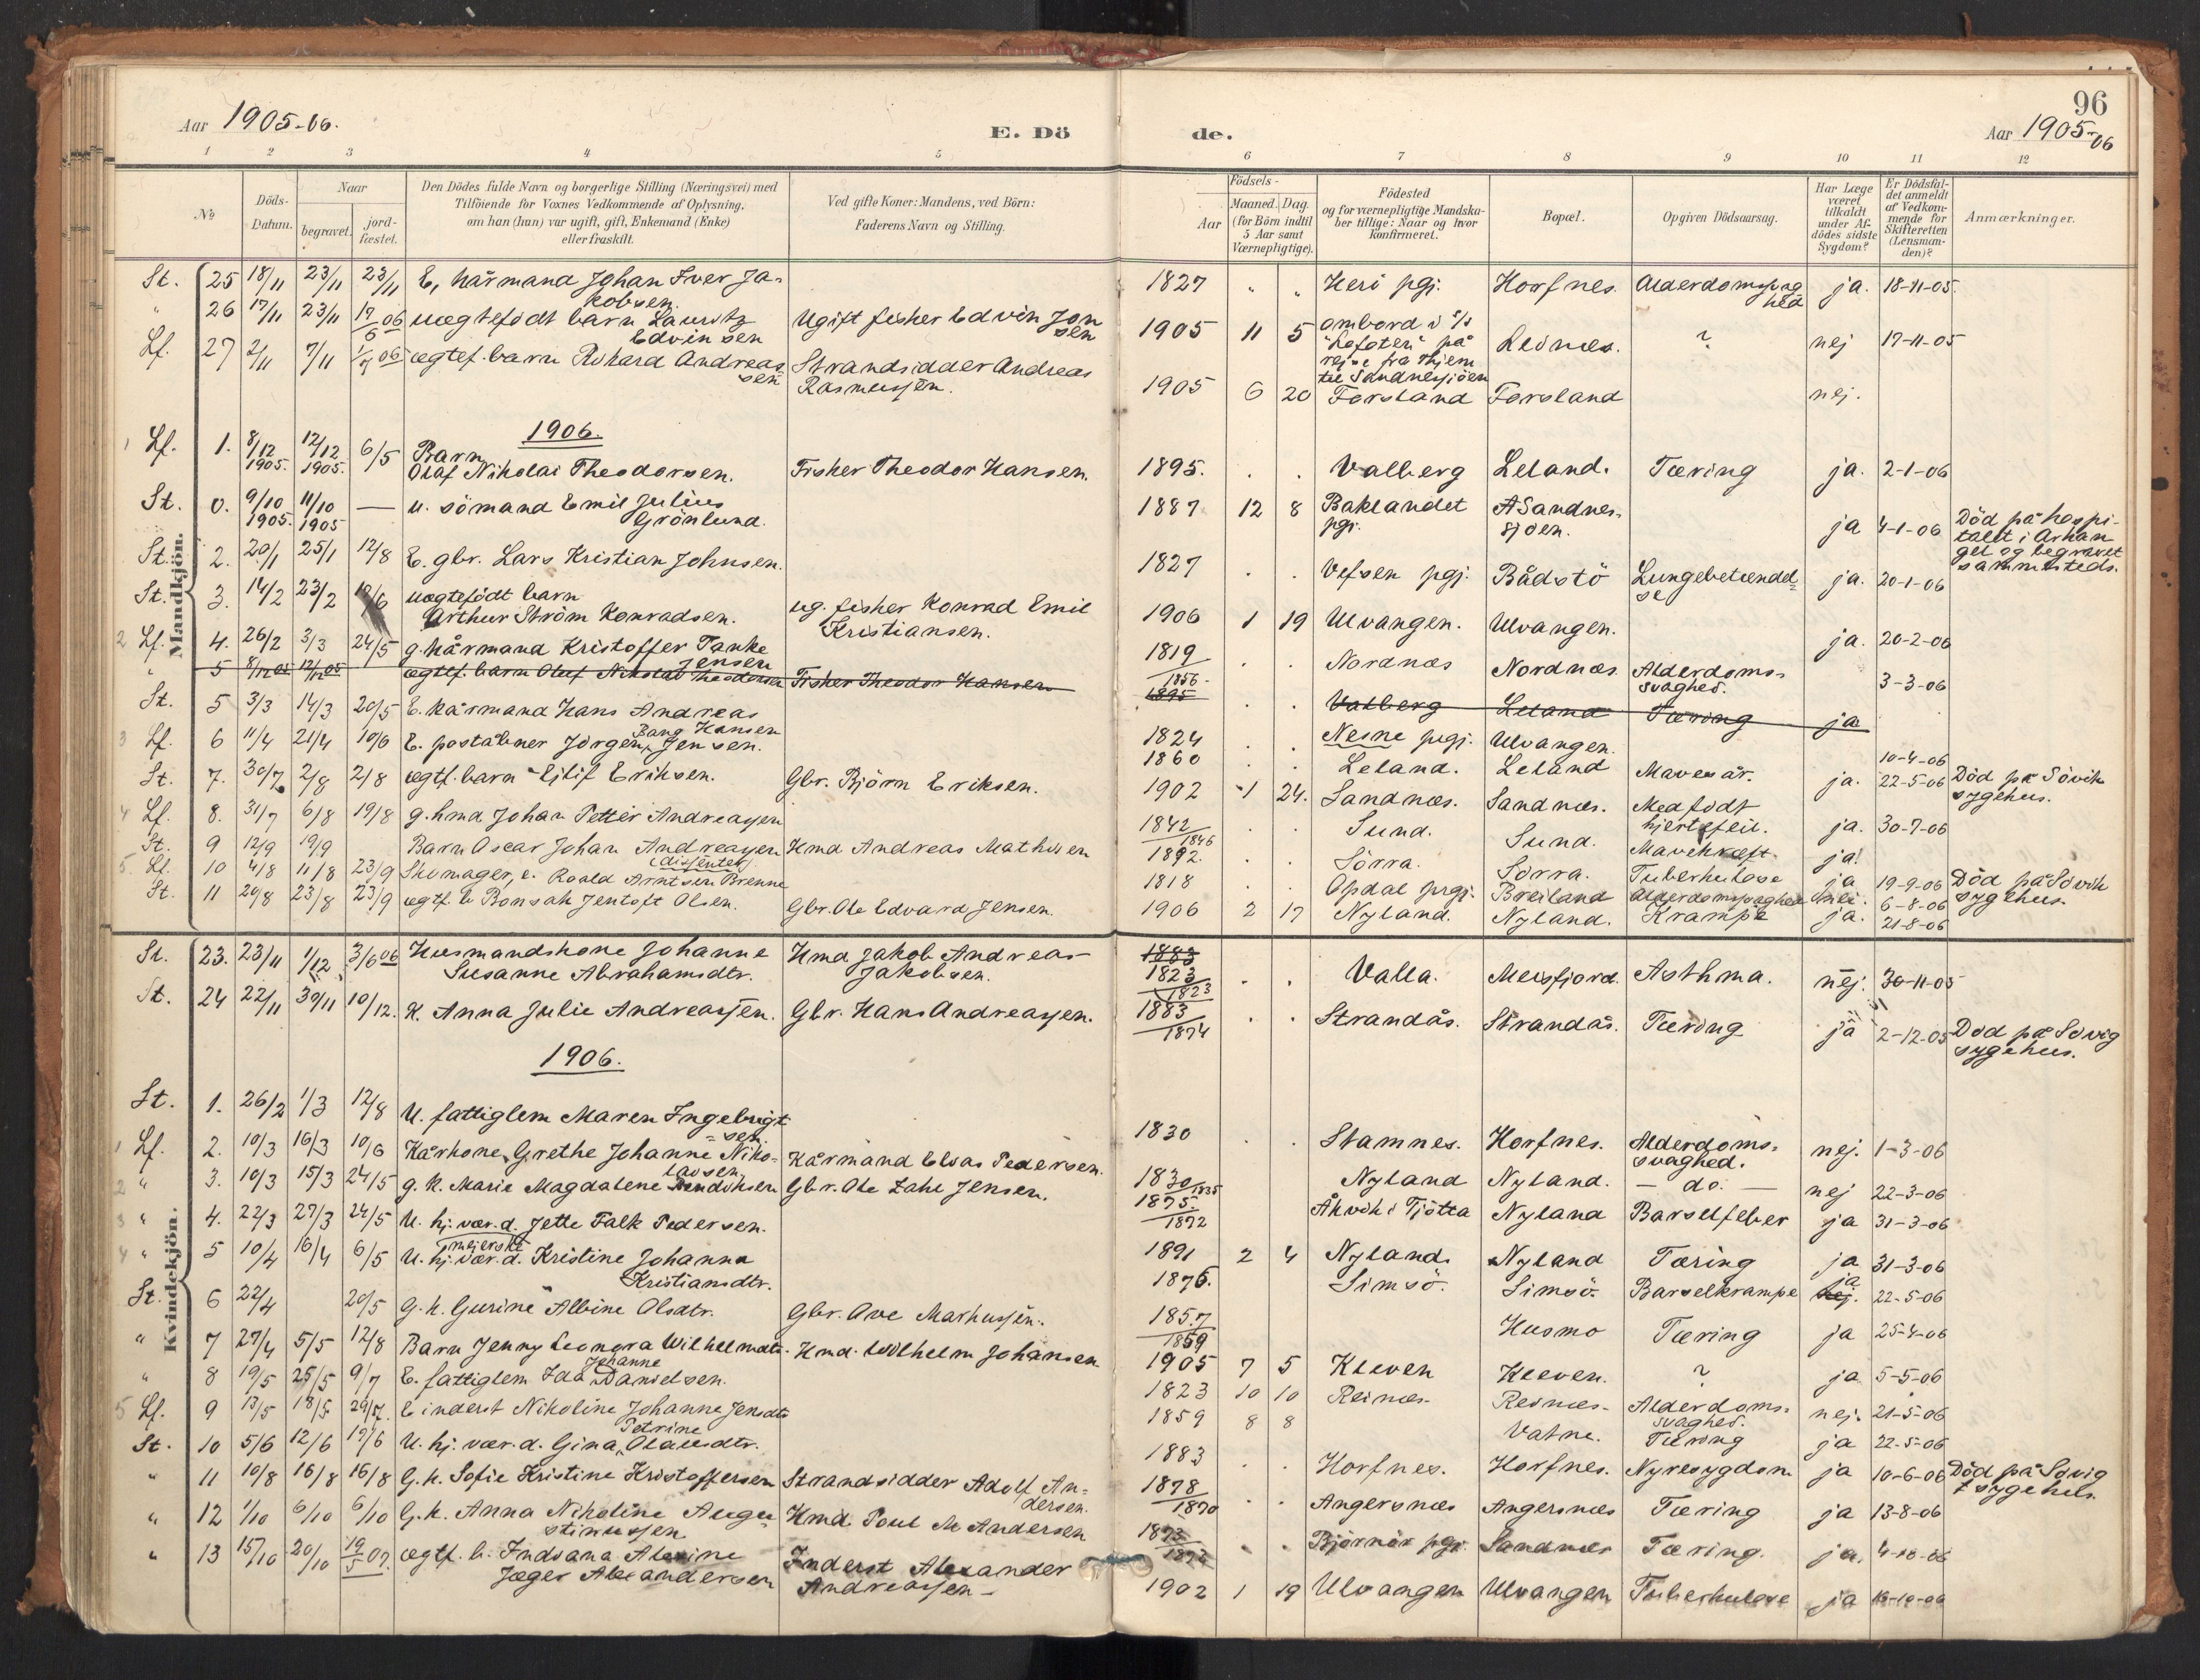 96
Aar 1905-06.
E. Dö
de.
Aar 1905-06
1 2 3 4 5 6 7 8 9 10 11 12
No
Döds-Datum.
Naar
begravet.
jord-fæstet.
Den Dödes fulde Navn og borgerlige Stilling (Næringsvei) med
Tilföiende for Voxnes Vedkommende af Oplysning,
om han (hun) var ugift, gift, Enkemand (Enke)
eller fraskilt.
Ved gifte Koner: Mandens, ved Börn:
Faderens Navn og Stilling.
Födsels-
Aar
Maaned.
Dag.
(for Börn indtil
5 Aar samt
Værnepligtige).
Födested
og for værnepligtige Mandska-
ber tillige: Naar og hvor
konfirmeret.
Bopæl.
Opgiven Dödsaarsag.
Har Læge
været
tilkaldt
under Af-
dödes sidste
Sygdom?
Er Dödsfal-
det anmeldt
af Vedkom-
mende for
Skifteretten
(Lensman-
den)?
Anmærkninger.
Mandkjön.
St. 25 18/11 23/11 23/11 E, kårmand Johan Iver Ja-
kobsen. 1827 " " Herö pgj. Horfnes. Alderdomssvag
hed ja. 18-11-05.
" 26 17/11 23/11 17/6 06 uægtefödt barn Lauritz
Edvinsen Ugift fisker Edvin Jon
sen 1905 11 5 ombord i s/s
"Lofoten" på
rejse fra Thjem
til Sandnesjöen Leines. ? nej 17-11-05
Lf. 27 2/11 7/11 06 ægtef. barn Rikard Andreas
sen Strandsidder Andreas
Rasmussen. 1905 6 20 Forsland Forsland nej.
1906.
1 Lf. 1. 8/12 1905. 12/12 1905. 6/5 Barn
Olaf Nikolai Theodorsen. Fisker Theodor Hansen. 1895. . . Valberg Leland. Tæring ja. 2-1-06
St. 0. 9/10 1905. 11/10 1905 — u. sömand Emil Julius
Grönlund. 1887 12 8 Baklandet
pgj. Sandnes-
sjöen. ja 4-1-06 Död på hospi-
talet i Arkan
gel og begravet
sammesteds.
St. 2. 20/1 25/1 12/8 E. gbr. Lars Kristian Johnsen. 1827 . . Vefsen pgj. Bådstö Lungebetændel-
se ja. 20-1-06
St. 3. 14/2 23/2 uægtefödt barn
Arthur Ström Konradsen. ug. fisker Konrad Emil
Kristiansen. 1906 1 19 Ulvangen. Ulvangen. ja. 20-2-06
2 Lf. 4. 26/2 3/3 24/5 g. kårmand Kristoffer Tanke
Jensen 1819 1856 . . Nordnæs Nordnæs. Alderdoms-
svaghed. 3-3-06
" 5 8/12 05 12/12 05 ægtef. barn Olaf Nikolai Theodorsen Fisker Theodor Hansen 1895 . . Valberg Leland Tæring ja
St. 5 3/3 14/3 20/5 E. kårmand Hans Andreas
Hansen 1824 . . Nesne pgj. Ulvangen. 10-4-06
3 Lf. 6 11/4 21/4 10/6 E. poståbner Jörgen Bang Jensen. 1860 . . Leland. Leland Mavesår. ja. 22-5-06 Död på Sövik
sygehus.
St. 7. 30/7 2/8 2/8 ægtf. barn Ejlif Eriksen. Gbr. Björn Eriksen. 1902 1 24. Sandnæs. Sandnæs. Medfödt
hjertefeil. ja. 30-7-06
4 Lf. 8. 31/7 6/8 19/8 g. hmd Johan Petter Andreassen 1842 1846 . . Sund. Sund. Mavekræft. ja!
St. 9 12/9 19/9 Barn Oscar Johan Andreassen Hmd Andreas Mathisen 1892. . . Sörra. Sörra. Tuberkulose ja 19-9-06 Död på Sövik
sygehus.
5. Lf. 10 4/8 11/8 23/9 Skomager, e. Roald Arntsen Brenne (dissenter) 1818 . . Opdal prgj. Breiland Alderdomssvaghed nei. 6-8-06
St. 11 20/8 23/8 23/9 ægtf. b Bonsak Jentoft Olsen. Gbr. Ole Edvard Jensen. 1906 2 17 Nyland. Nyland. Krampe ja. 21-8-06
Kvindekjön.
St. 23. 23/11 1/12 3/6 06 Husmandskone Johanne
Susanne Abrahamsdtr. Hmd Jakob Andreas
Jakobsen. 1883 1823 1823 . . Valla. Meisfjord. Asthma. nej. 30-11-05
St. 24 22/11 30/11 10/12. K. Anna Julie Andreassen. Gbr. Hans Andreassen. 1883 1874 . . Strandås. Strandås. Tæring ja 2-12-05 Död på Sövig
sygehus.
1906.
St. 1. 26/2 1/3 12/8 U. fattiglem Maren Ingebrigt
sen. 1830 . . Stamnes. Horfnes. Alderdoms-
svaghed. nej. 1-3-06
1 Lf. 2. 10/3 16/3 10/6 Kårkone Grethe Johanne Niko-
laisen. Kårmand Elias Pedersen. 1830 1835 Nyland Nyland. — do. — nej 22-3-06
2 " 3. 10/3 15/3 24/5 g. k. Marie Magdalene Gbr. Ole Zahl Jensen. 1875. 1872 Åkvik i Tjötta Nyland Barselfeber ja 31-3-06
3 " 4. 22/3 27/3 24/5 U. hj. vær. d. Jette Falk Pedersen. 1891 2 4 Nyland Nyland Tæring ja 31-3-06
4 " 5 10/4 16/4 6/5 U. hj. vær. d. meierske Kristine Johanna
Kristiansdtr. 1876. Simsö. Simsö. Barselkrampe nej. ja 22-5-06
St. 6 22/4 20/5 G. k. Gurine Albine Olsdtr. Gbr. Ove Markussen. 1857 1859 Husmo Tæring ja 25-4-06
" 7 27/4 5/5 12/8 Barn Jenny Leonora Wilhelmdtr. Hmd. Wilhelm Johansen 1905 7 5 Kleven Kleven. ? ja 5-5-06
" 8 19/5 25/5 9/7 E. fattiglem Ida Johanne Danielsen. 1823 10 10 Reinæs. Reinæs. Alderdoms-
svaghed. nej. 21-5-06
5 Lf. 9 13/5 18/5 E inderst Nikoline Johanne Jensdtr 1859 8 8 Vatne. Tæring ja 22-5-06
St. 10 5/6 12/6 17/6 U. hj. vær. d. Gina Petrine Olausdtr. 1883 . . Horfnes. Horfnes. Nyresygdom ja 10-6-06 Död på Sövig
sygehus.
" 11 10/8 16/8 16/8 G. k. Sofie Kristine Kristoffersen Strandsidder Adolf An-
dersen. 1878 1870 . . Angersnæs Angersnæs Tæring ja 13-8-06
" 12 1/10 6/10 6/10 G. k. Anna Nikoline Augu-
stinussen Hmd. Poul M Andersen 1873 . . Björnör pgj. Sandnæs Tæring. ja. 4-10-06
" 13 15/10 20/10 19/5 07. ægtf. b. Indiana Alexine
Jæger Alexandersen Inderst Alexander
Andreassen 1902 1 19 Ulvangen Ulvangen Tuberkulose ja 16-10-06